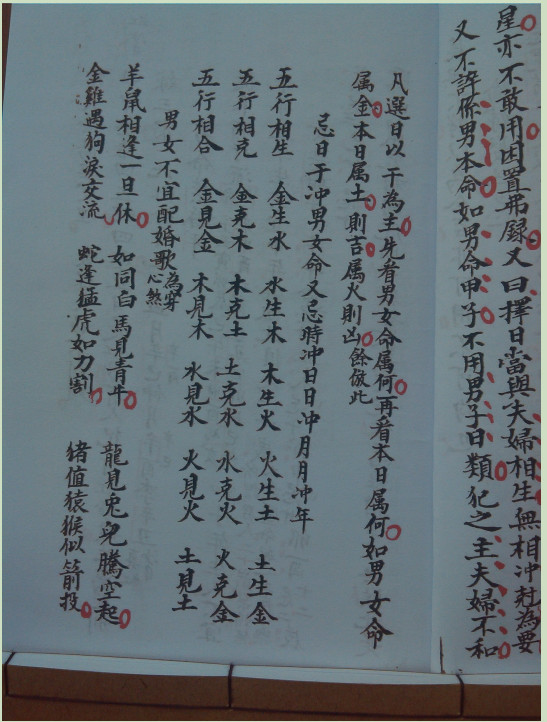 星亦不敢用因置弗録又曰擇日當與夫婦相生無相冲尅為要
又不許你男本命如男命甲子不用男子日類犯之主夫婦不和
凡選日以干為主先看男女命属何再看本日属何如男女命
属金本日属土則吉属火則凶餘倣此
忌日于冲男女命又忌時冲日日冲月月冲年
五行相生 金生水 水生木 木生火 火生土 土生金
五行相克 金克木 木克土 土克水 水克火 火克金
五行相合 金見金 木見木 水見水 火見火 土見土
男女不宜配婚歌為穿心煞
羊鼠相逢一旦休 如同白馬見青牛 龍見兎兒騰空起
金雞遇狗淚交流 蛇逢猛虎如力割 猪值猿猴似箭投